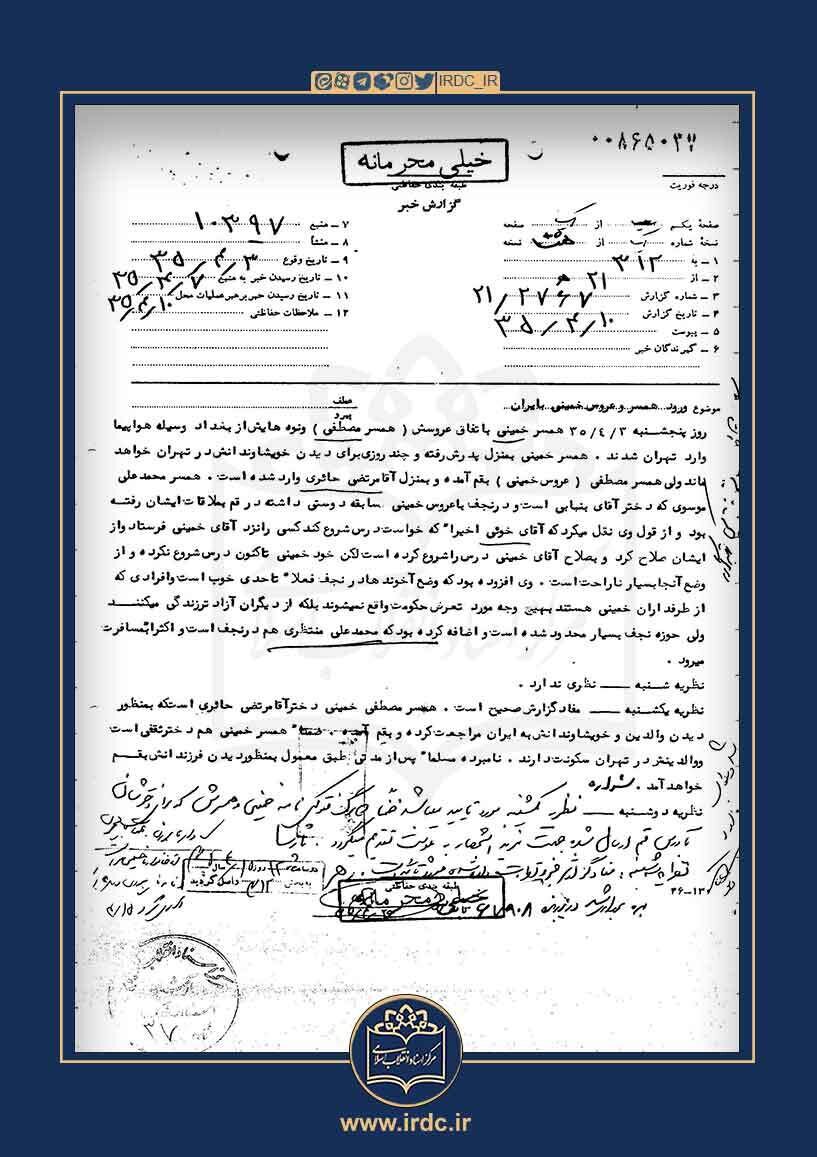 IRDC_IR
۰۰۸۶۵۰۳۷
خیلی محرمانه
طبقه بندی حفاظتی
درجه فوریت
گزارش خبر
صفحه یکم از یک صفحه
نسخه شماره از هشت نسخه
۱ ـ به ۳۱۲
۲ ـ از ۲۱ ه
۳ ـ شماره گزارش ۲۱/۲۷۶۷
۴ ـ تاریخ گزارش ۳۵/۴/۱۰
۵ ـ پیوست
۶ ـ گیرندگان خبر
۷ ـ منبع ۱۰۳۹۷
۸ ـ منشأ
۹ ـ تاریخ وقوع ۳۵/۴/۳
۱۰ ـ تاریخ رسیدن خبر به منبع ۳۵/۴/۷
۱۱ ـ تاریخ رسیدن خبر برهبر عملیات محل ۳۵/۴/۱۰
۱۲ ـ ملاحظات حفاظتی
موضوع ورود همسر و عروس خمینی بایران
روز پنجشنبه ۳۵/۴/۳ همسر خمینی باتفاق عروسش ( همسر مصطفی ) ونوه هایش از بغداد وسیله هواپیما
وارد تهران شدند . همسر خمینی بمنزل پدرش رفته و چند روزی برای دیدن خویشاوندانش در تهران خواهد
ماند ولی همسر مصطفی ( عروس خمینی ) بقم آمده و بمنزل آقا مرتضی حائری وارد شده است . همسر محمدعلی
موسوی که دختر آقای بنیابی است و در نجف با عروس خمینی سابقه دوستی داشته در قم بملاقات ایشان رفته
بود و از قول وی نقل میکرد که آقای خوئی اخیراً که خواست درس شروع کند کسی را نزد آقای خمینی فرستاد و از
ایشان صلاح کرد و بصلاح آقای خمینی درس را شروع کرده است لکن خود خمینی تاکنون درس شروع نکرده و از
وضع آنجا بسیار ناراحت است . وی افزوده بود که وضع آخوندها در نجف فعلاً تا حدی خوب است و افرادی که
از طرفداران خمینی هستند بهیچ وجه مورد تعرض حکومت واقع نمیشوند بلکه از دیگران آزادتر زندگی میکنند
ولی حوزه نجف بسیار محدود شده است و اضافه کرده بود که محمدعلی منتظری هم در نجف است و اکثراً بمسافرت
میرود .
نظریه شنبه ـــ نظری ندارد .
نظریه یکشنبه ـــ مفاد گزارش صحیح است . همسر مصطفی خمینی دختر آقا مرتضی حائری است که بمنظور
دیدن والدین و خویشاوندانش به ایران مراجعت کرده و بقم آمده . ضمناً همسر خمینی هم دختر ثقفی است
و والدینش در تهران سکونت دارند . نامبرده مسلماً پس از مدتی طبق معمول بمنظور دیدن فرزندانش بقم
خواهد آمد . شراره
نظریه دوشنبه ـ نظریه یکشنبه مورد تایید میباشد
۳۶-۱۳
طبقه بندی حفاظتی
خیلی محرمانه
۳۷
مرکز اسناد انقلاب اسلامی
www.irdc.ir